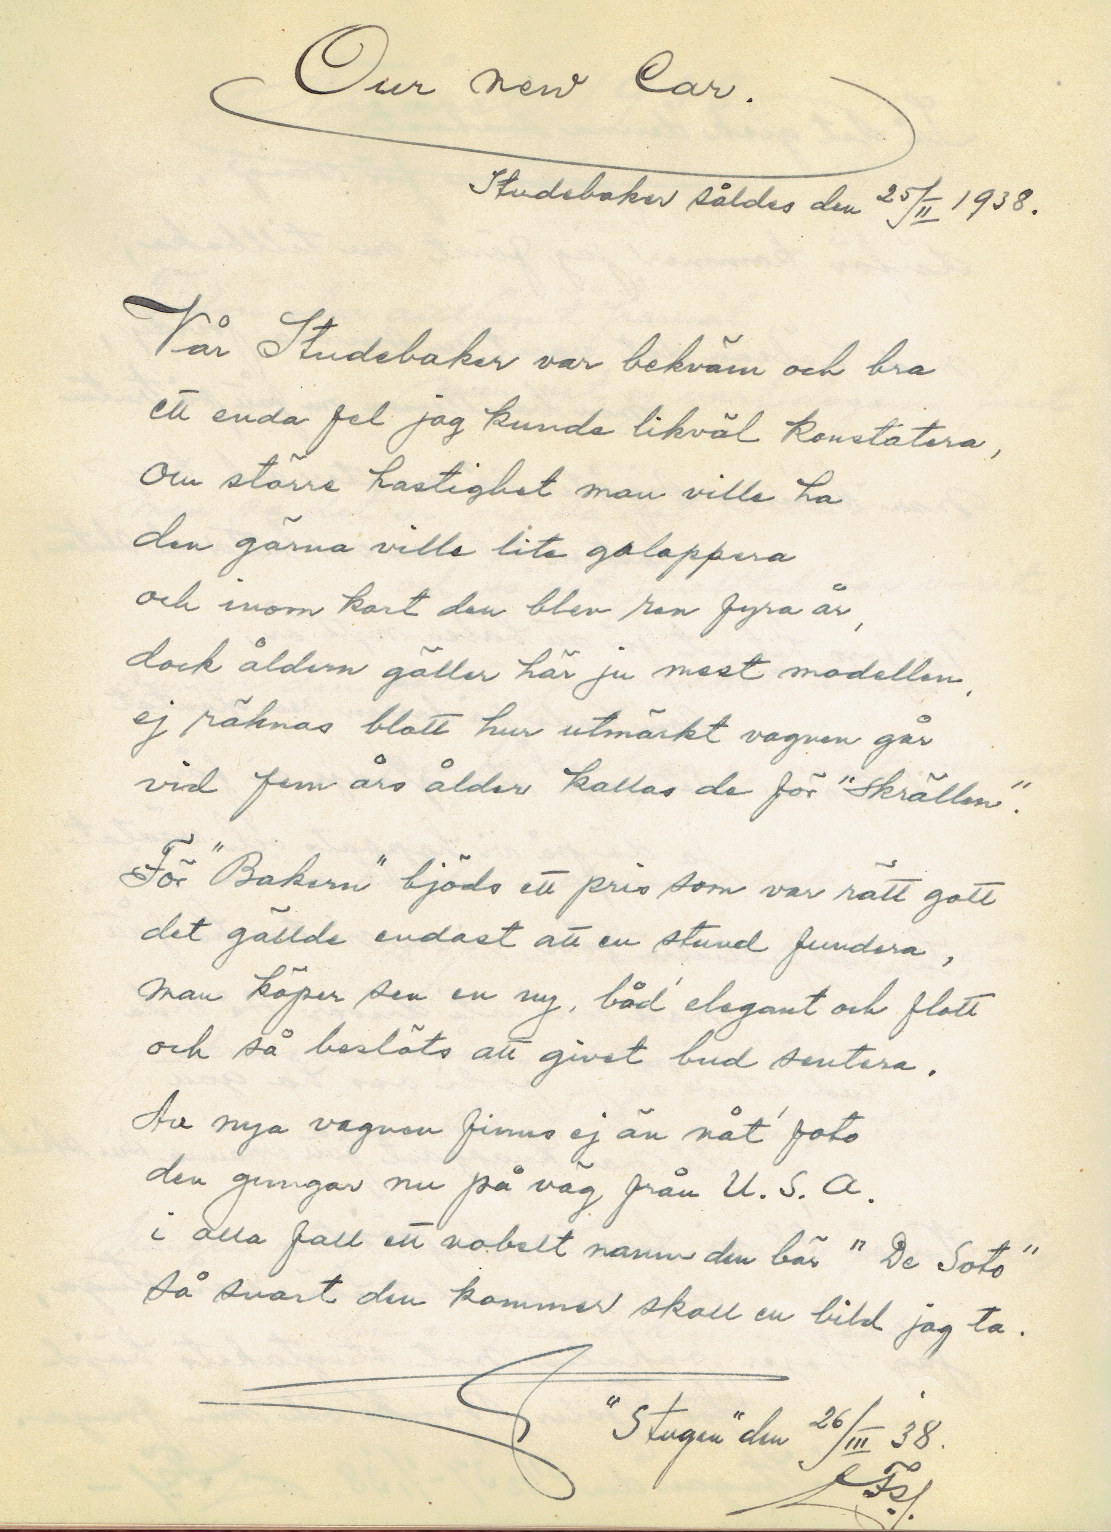 Our new Car.
Studebaker såldes den 25/II 1938.
Vår Studebaker var bekväm och bra
ett enda fel jag kunde likväl konstatera,
om större hastighet man ville ha
den gärna ville lite galoppera
och inom kort den blev ren fyra år,
dock åldern gäller här ju mest modellen,
ej räknas blott hur utmärkt vagnen går
vid fem års ålder kallas de för "Skrällen".
För "Bakern" bjöds ett pris som var rätt gott
det gällde endast att en stund fundera,
man köper sen en ny, båd' elegant och flott
och så beslöts att givet bud sentera.
Av nya vagnen finns ej än nåt' foto
den gungar nu på väg från U.S.A.
i alla fall ett nobelt namn den bär "De Soto"
så snart den kommer skall en bild jag ta.
"Stugan" den 26/III '38.